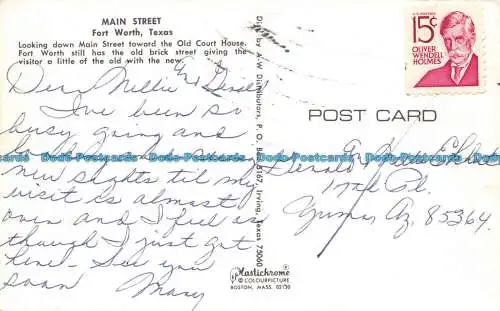 MAIN STREET
Fort Worth, Texas
Looking down Main Street toward the Old Court House.
Fort Worth still has the old brick street giving the
visitor a little of the old with the new.
Dear Nellie & Gerald
I've been so
busy going and
new sights til my
visit is almost
over and I feel as
though I just got
here – See you
soon Mary
Dist. by A-W Distributors, P. O. Box 3167, Irving, Texas 75060
Plastichrome ®
© COLOURPICTURE
BOSTON, MASS. 02130
U.S. POSTAGE
15¢
OLIVER
WENDELL
HOLMES
POST CARD
Gerald
Pl.
Yuma, Az. 85364
Postcards Postcards Postcards Postcards Postcards